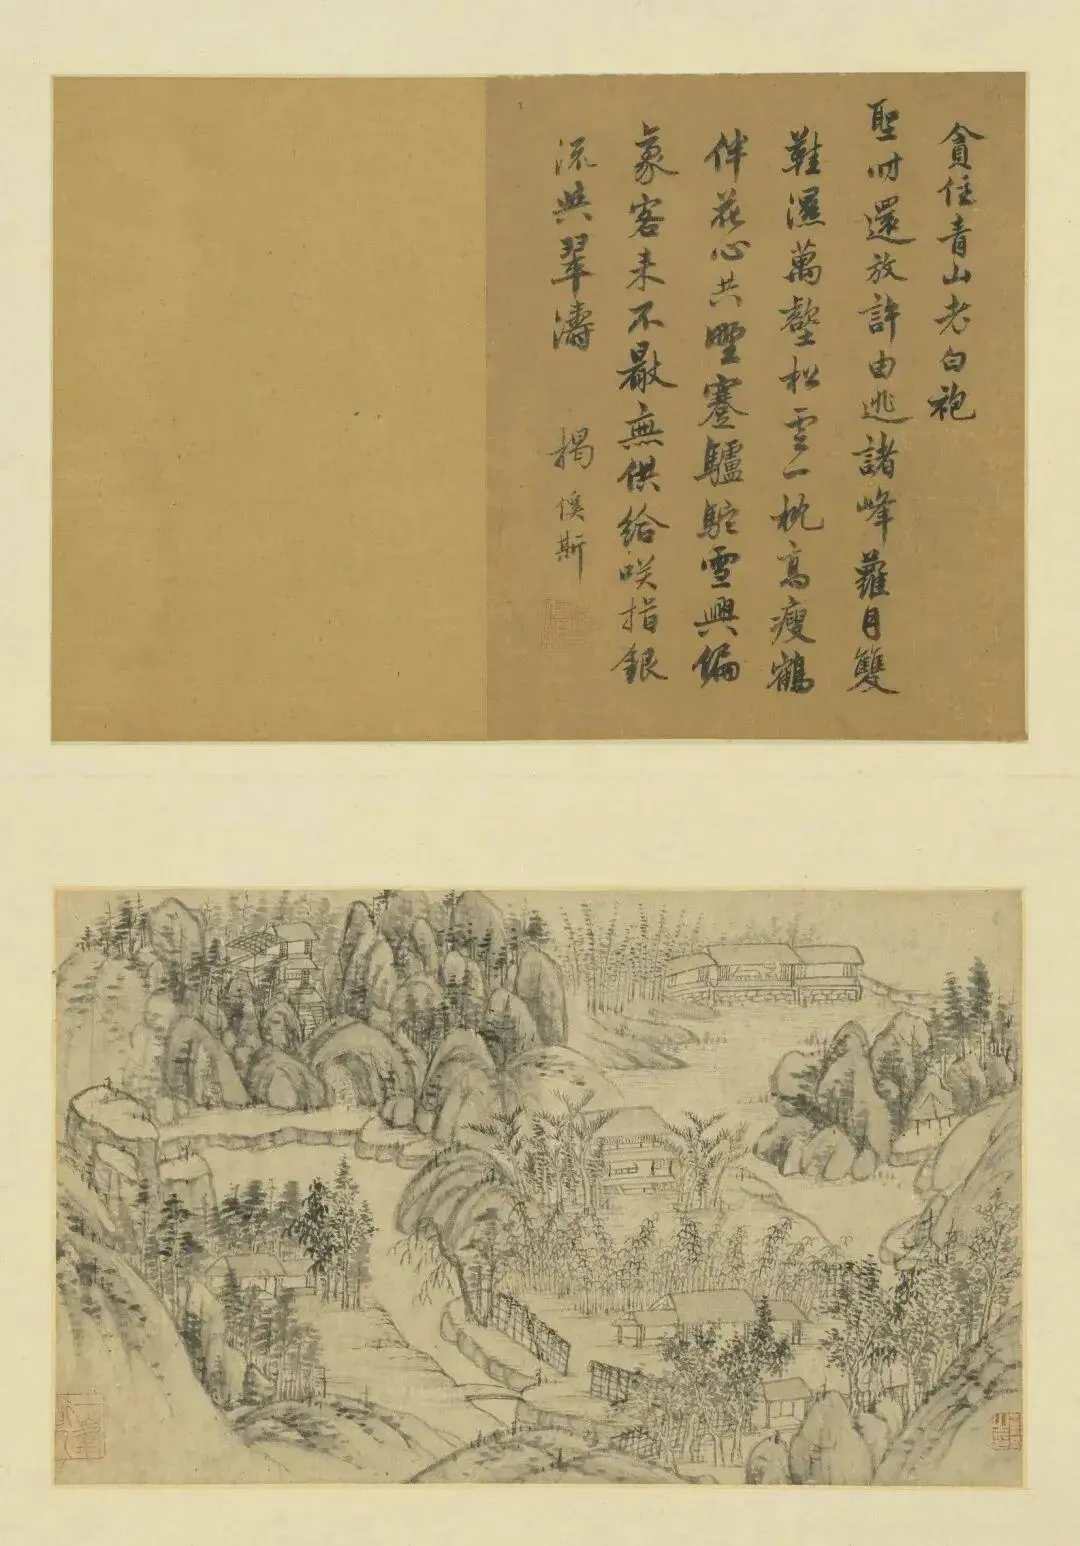 貪住青山老白袍
聖明還放許由逃諸峰蘿月雙
鞋濕萬壑松雲一枕高瘦鶴
伴花心共蹇驢駝雪興偏
豪客来不厭無供給咲指銀
流與翠濤
揭傒斯